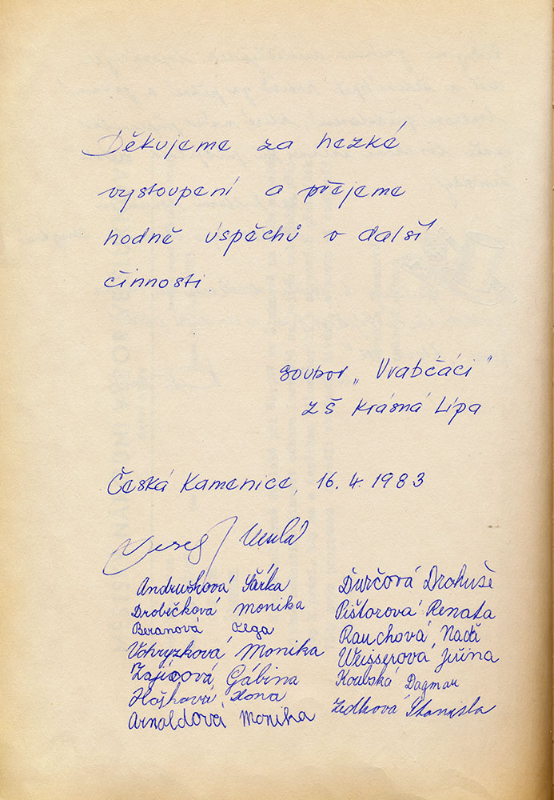 Děkujeme za hezké
vystoupení a přejeme
hodně úspěchů v další
činnosti.
soubor „Vrabčáci"
ZŠ Krásná Lípa
Česká Kamenice, 16.4.1983
Andrušková Šárka
Drobíčková Monika
Beranová Olga
Vohryzková Monika
Zajícová Gábina
Hojková Ilona
Arnoldová Monika
Ďurčová Drahuše
Pištorová Renata
Rauchová Naďa
Weisserová Jiřina
Koubská Dagmar
Zedková